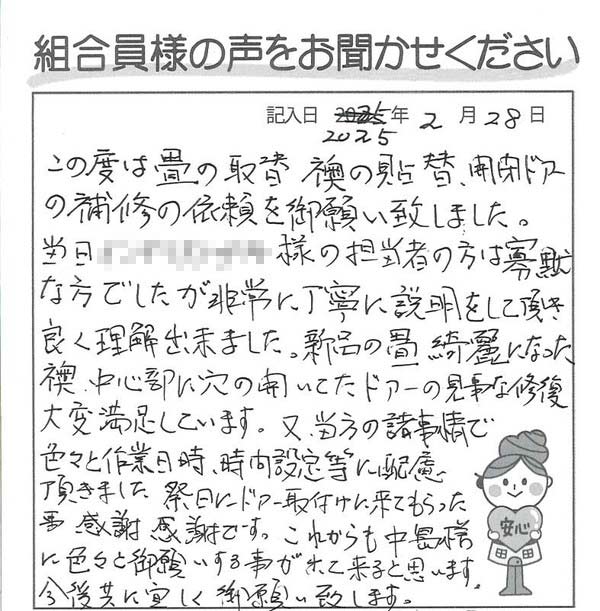 組合員様の声をお聞かせください
記入日 2025年 2月 28日
2025
この度は畳の取替 襖の貼替、開閉ドアー
の補修の依頼を御願い致しました。
当日 様の担当者の方は寡黙
な方でしたが非常に丁寧に説明をして頂き
良く理解出来ました。新品の畳 綺麗になった
襖、中心部に穴の開いてたドアーの見事な修復
大変満足しています。又、当方の諸事情で
色々と作業日時、時間設定等に配慮
頂きました 祭日にドアー取付けに来てもらった
事 感謝 感謝です。これからも中島様
に色々と御願いする事がれて来ると思います。
今後共に宜しく御願い致します。
安心